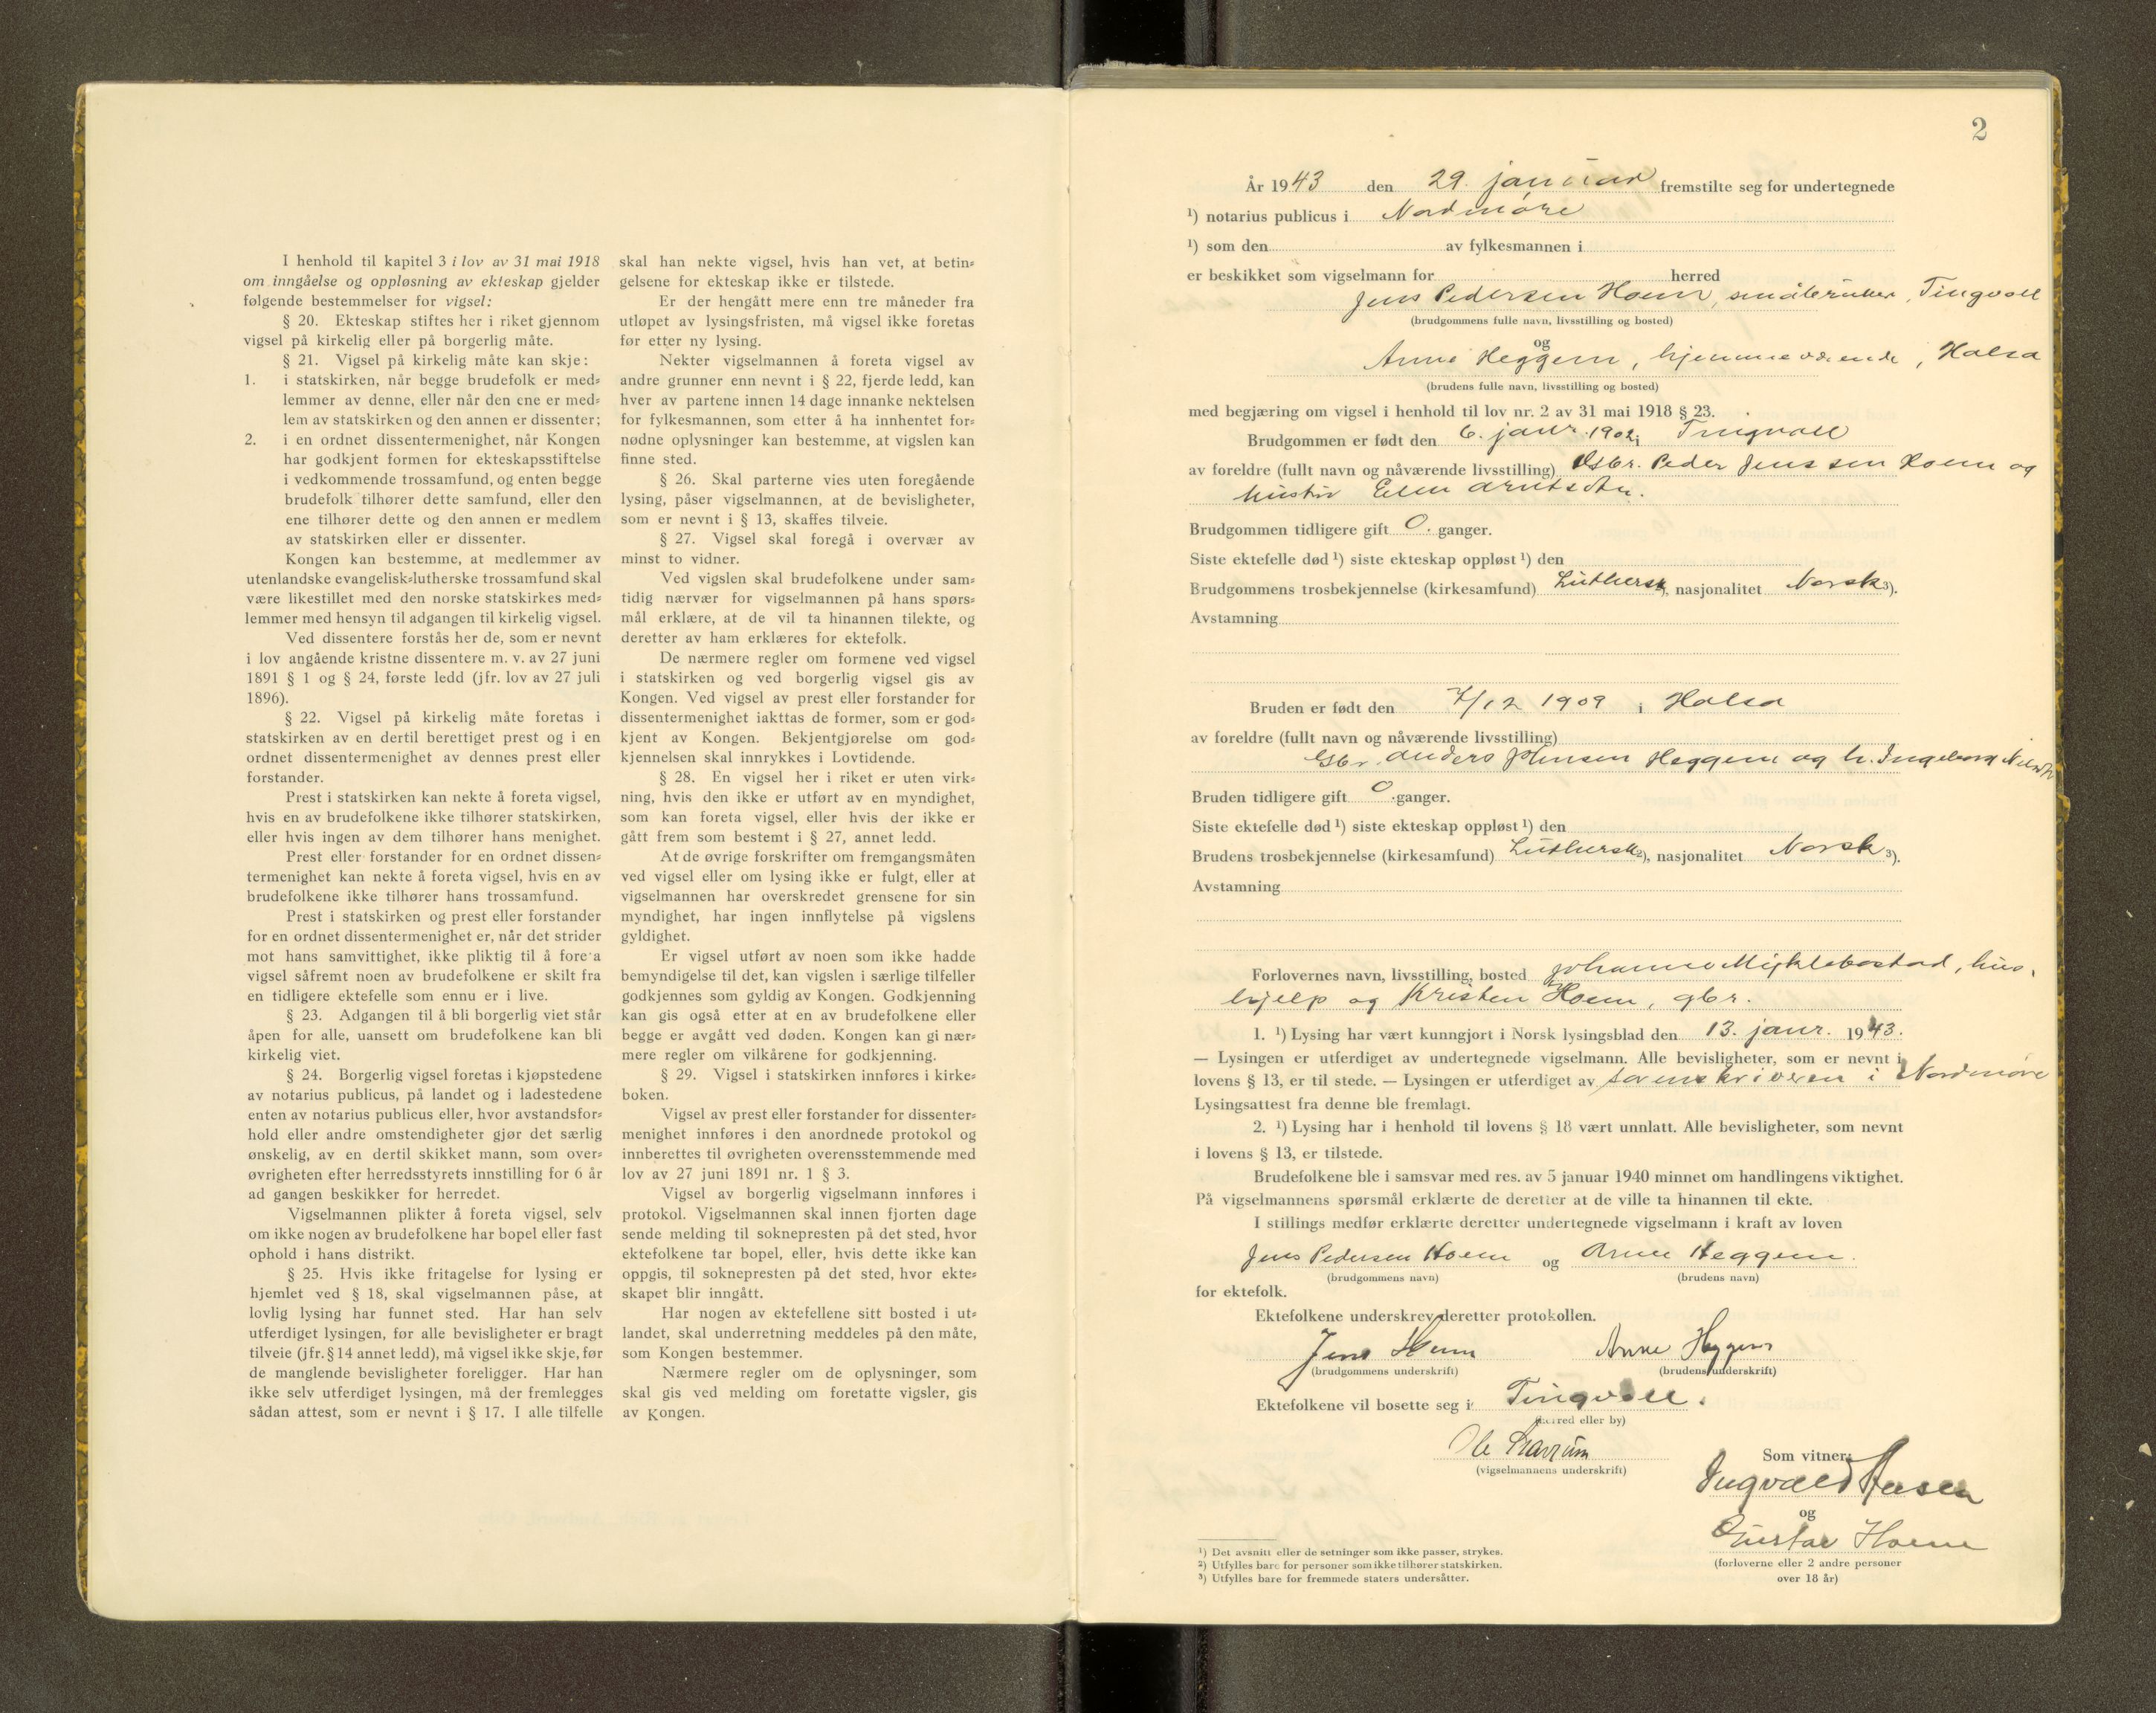 I henhold til kapitel 3 i lov av 31 mai 1918
om inngåelse og oppløsning av ekteskap gjelder
følgende bestemmelser for vigsel:
§ 20. Ekteskap stiftes her i riket gjennom
vigsel på kirkelig eller på borgerlig måte.
§ 21. Vigsel på kirkelig måte kan skje:
1. i statskirken, når begge brudefolk er med-
lemmer av denne, eller når den ene er med-
lem av statskirken og den annen er dissenter;
2. i en ordnet dissentermenighet, når Kongen
har godkjent formen for ekteskapsstiftelse
i vedkommende trossamfund, og enten begge
brudefolk tilhører dette samfund, eller den
ene tilhører dette og den annen er medlem
av statskirken eller er dissenter.
Kongen kan bestemme, at medlemmer av
utenlandske evangelisk-lutherske trossamfund skal
være likestillet med den norske statskirkes med-
lemmer med hensyn til adgangen til kirkelig vigsel.
Ved dissentere forstås her de, som er nevnt
i lov angående kristne dissentere m. v. av 27 juni
1891 § 1 og § 24, første ledd (jfr. lov av 27 juli
1896).
§ 22. Vigsel på kirkelig måte foretas i
statskirken av en dertil berettiget prest og i en
ordnet dissentermenighet av dennes prest eller
forstander.
Prest i statskirken kan nekte å foreta vigsel,
hvis en av brudefolkene ikke tilhører statskirken,
eller hvis ingen av dem tilhører hans menighet.
Prest eller forstander for en ordnet dissen-
termenighet kan nekte å foreta vigsel, hvis en av
brudefolkene ikke tilhører hans trossamfund.
Prest i statskirken og prest eller forstander
for en ordnet dissentermenighet er, når det strider
mot hans samvittighet, ikke pliktig til å fore a
vigsel såfremt noen av brudefolkene er skilt fra
en tidligere ektefelle som ennu er i live.
§ 23. Adgangen til å bli borgerlig viet står
åpen for alle, uansett om brudefolkene kan bli
kirkelig viet.
§ 24. Borgerlig vigsel foretas i kjøpstedene
av notarius publicus, på landet og i ladestedene
enten av notarius publicus eller, hvor avstandsfor-
hold eller andre omstendigheter gjør det særlig
ønskelig, av en dertil skikket mann, som over-
øvrigheten efter herredsstyrets innstilling for 6 år
ad gangen beskikker for herredet.
Vigselmannen plikter å foreta vigsel, selv
om ikke nogen av brudefolkene har bopel eller fast
ophold i hans distrikt.
§ 25. Hvis ikke fritagelse for lysing er
hjemlet ved § 18, skal vigselmannen påse, at
lovlig lysing har funnet sted. Har han selv
utferdiget lysingen, før alle bevisligheter er bragt
tilveie (jfr. § 14 annet ledd), må vigsel ikke skje, før
de manglende bevisligheter foreligger. Har han
ikke selv utferdiget lysingen, må der fremlegges
sådan attest, som er nevnt i § 17. I alle tilfelle
skal han nekte vigsel, hvis han vet, at betin-
gelsene for ekteskap ikke er tilstede.
Er der hengått mere enn tre måneder fra
utløpet av lysingsfristen, må vigsel ikke foretas
før etter ny lysing.
Nekter vigselmannen å foreta vigsel av
andre grunner enn nevnt i § 22, fjerde ledd, kan
hver av partene innen 14 dage innanke nektelsen
for fylkesmannen, som etter å ha innhentet for-
nødne oplysninger kan bestemme, at vigslen kan
finne sted.
§ 26. Skal parterne vies uten foregående
lysing, påser vigselmannen, at de bevisligheter,
som er nevnt i § 13, skaffes tilveie.
§ 27. Vigsel skal foregå i overvær av
minst to vidner.
Ved vigslen skal brudefolkene under sam-
tidig nærvær for vigselmannen på hans spørs-
mål erklære, at de vil ta hinannen tilekte, og
deretter av ham erklæres for ektefolk.
De nærmere regler om formene ved vigsel
i statskirken og ved borgerlig vigsel gis av
Kongen. Ved vigsel av prest eller forstander for
dissentermenighet iakttas de former, som er god-
kjent av Kongen. Bekjentgjørelse om god-
kjennelsen skal innrykkes i Lovtidende.
§ 28. En vigsel her i riket er uten virk-
ning, hvis den ikke er utført av en myndighet,
som kan foreta vigsel, eller hvis der ikke er
gått frem som bestemt i § 27, annet ledd.
At de øvrige forskrifter om fremgangsmåten
ved vigsel eller om lysing ikke er fulgt, eller at
vigselmannen har overskredet grensene for sin
myndighet, har ingen innflytelse på vigslens
gyldighet.
Er vigsel utført av noen som ikke hadde
bemyndigelse til det, kan vigslen i særlige tilfeller
godkjennes som gyldig av Kongen. Godkjenning
kan gis også etter at en av brudefolkene eller
begge er avgått ved døden. Kongen kan gi nær-
mere regler om vilkårene for godkjenning.
§ 29. Vigsel i statskirken innføres i kirke-
boken.
Vigsel av prest eller forstander for dissenter-
menighet innføres i den anordnede protokol og
innberettes til øvrigheten overensstemmende med
lov av 27 juni 1891 nr. 1 § 3.
Vigsel av borgerlig vigselmann innføres i
protokol. Vigselmannen skal innen fjorten dage
sende melding til soknepresten på det sted, hvor
ektefolkene tar bopel, eller, hvis dette ikke kan
oppgis, til soknepresten på det sted, hvor ekte-
skapet blir inngått.
Har nogen av ektefellene sitt bosted i ut-
landet, skal underretning meddeles på den måte,
som Kongen bestemmer.
Nærmere regler om de oplysninger, som
skal gis ved melding om foretatte vigsler, gis
av Kongen.
2
År 1943 den 29. januar fremstilte seg for undertegnede
1) notarius publicus i Nordmøre
1) som den av fylkesmannen i
er beskikket som vigselmann for herred
Jens Pedersen Hoem, småbruker, Tingvoll
(brudgommens fulle navn, livsstilling og bosted)
og
Anne Heggem, hjemmeværende, Halsa
(brudens fulle navn, livsstilling og bosted)
med begjæring om vigsel i henhold til lov nr. 2 av 31 mai 1918 § 23.
Brudgommen er født den 6. janr. 1902 i Tingvoll
av foreldre (fullt navn og nåværende livsstilling) Gbr. Peder Jenssen Hoem og
hustru Elen Arntsdtr.
Brudgommen tidligere gift 0 ganger.
Siste ektefelle død 1) siste ekteskap oppløst 1) den
Brudgommens trosbekjennelse (kirkesamfund) Luthersk, nasjonalitet Norsk 3).
Avstamning
Bruden er født den 7/12 1909 i Halsa
av foreldre (fullt navn og nåværende livsstilling)
Gbr. Anders Johnsen Heggem og h. Ingeborg Nilsdtr
Bruden tidligere gift 0 ganger.
Siste ektefelle død 1) siste ekteskap oppløst 1) den
Brudens trosbekjennelse (kirkesamfund) Luthersk 2), nasjonalitet Norsk 3).
Avstamning
Forlovernes navn, livsstilling, bosted Johanne Myklebostad, hus-
hjelp og Kristen Hoem, gbr.
1. 1) Lysing har vært kunngjort i Norsk lysingsblad den 13. janr. 1943.
— Lysingen er utferdiget av undertegnede vigselmann. Alle bevisligheter, som er nevnt i
lovens § 13, er til stede. — Lysingen er utferdiget av sorenskriveren i Nordmøre
Lysingsattest fra denne ble fremlagt.
2. 1) Lysing har i henhold til lovens § 18 vært unnlatt. Alle bevisligheter, som nevnt
i lovens § 13, er tilstede.
Brudefolkene ble i samsvar med res. av 5 januar 1940 minnet om handlingens viktighet.
På vigselmannens spørsmål erklærte de deretter at de ville ta hinannen til ekte.
I stillings medfør erklærte deretter undertegnede vigselmann i kraft av loven
Jens Pedersen Hoem og Anne Heggem
(brudgommens navn) (brudens navn)
for ektefolk.
Ektefolkene underskrev deretter protokollen.
Jens Hoem Anne Heggem
(brudgommens underskrift) (brudens underskrift)
Ektefolkene vil bosette seg i Tingvoll.
(herred eller by)
Ole
(vigselmannens underskrift)
Som vitner:
Ingvald
og
Gustav Hoem
(forloverne eller 2 andre personer
over 18 år)
1) Det avsnitt eller de setninger som ikke passer, strykes.
2) Utfylles bare for personer som ikke tilhører statskirken.
3) Utfylles bare for fremmede staters undersåtter.